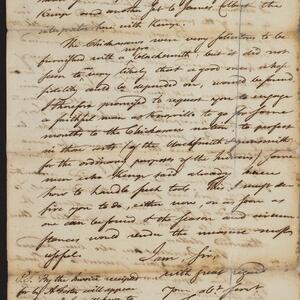 Kings and another Yet to James Colbert the
interpreter here with Kings.
The Chickasaws were very solicitous to be
furnished with a negro blacksmith, but it did not
seem to very likely that a good one, whose
fidelity could be depended on, would be found
I therefore promised to request you to engage
a faithful man at Knoxville to go for some
months to the Chickasaw nation to perfect
in those arts (of the blacksmith & gunsmith
for the ordinary purposes of the business) some
men who Kings said already knew
how to handle such tools. This I must de-
sire you to do, either now, or as soon as
one can be found & the season and circum-
stances would render the measure most
useful.
I am, Sir,
with great regard
By the invoice receipted
for by A. Foster will appear
your obt. servt